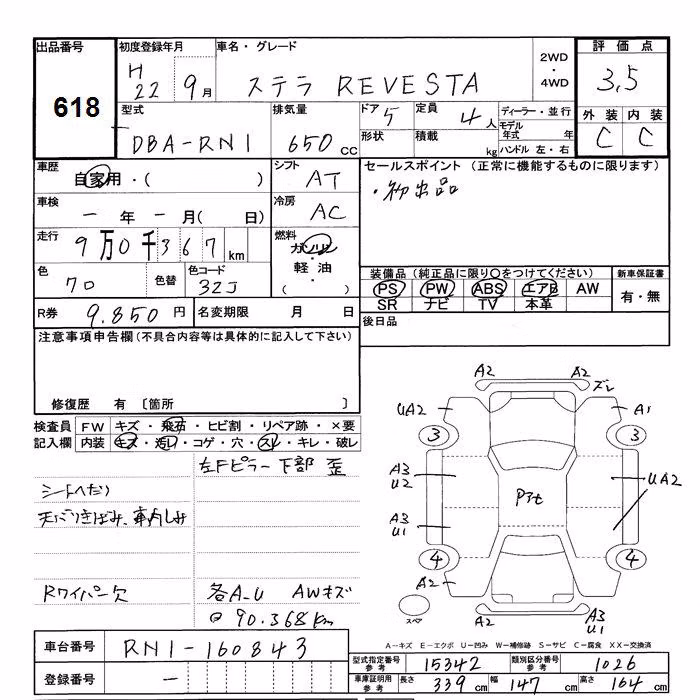 出品番号
618
初度登録年月
H 22 9月
車名・グレード
ステラ REVESTA
2WD
・
4WD
評価点
3,5
外装 内装
C C
型式
DBA-RN1
排気量
650 cc
ドア 5
形状
定員 4人
積載 kg
ディーラー・並行
モデル年式 年
ハンドル 左・右
車歴
自家用・( )
シフト
AT
セールスポイント (正常に機能するものに限ります)
・初出品
車検
ー 年 ー 月( 日)
冷房
AC
走行
9万0千367km
燃料
ガソリン
・
軽油
・
( )
色
70
色替
色コード
32J
装備品 (純正品に限り〇をつけてください)
PS PW ABS エアB AW
SR ナビ TV 本革
新車保証書
有・無
R券
9.850円
名変期限 月 日
後日品
注意事項申告欄 (不具合内容等は具体的に記入して下さい)
修復歴 有 〔箇所 〕
検査員 FW キズ・飛石・ヒビ割・リペア跡・×要
記入欄 内装 キズ・汚レ・コゲ・穴・スレ・キレ・破レ
左Fピラー下部 歪
シートへたり
天バリきばみ、車内しみ
Rワイパー欠
各A-U AWキズ
@ 90.368km
A2 A2
ズレ
UA2 A1
3 3
A3
U2
UA2
Pノた
A3
U1
4 4
A2
スペア
A2 A3
U1
A-キズ E-エクボ U-凹み W-補修跡 S-サビ C-腐食 XX-交換済
車台番号
RN1-160843
登録番号
ー
型式指定番号 参考
15342
類別区分番号 参考
1026
車庫証明用 参考
長さ 339cm 幅 147cm 高さ 164cm